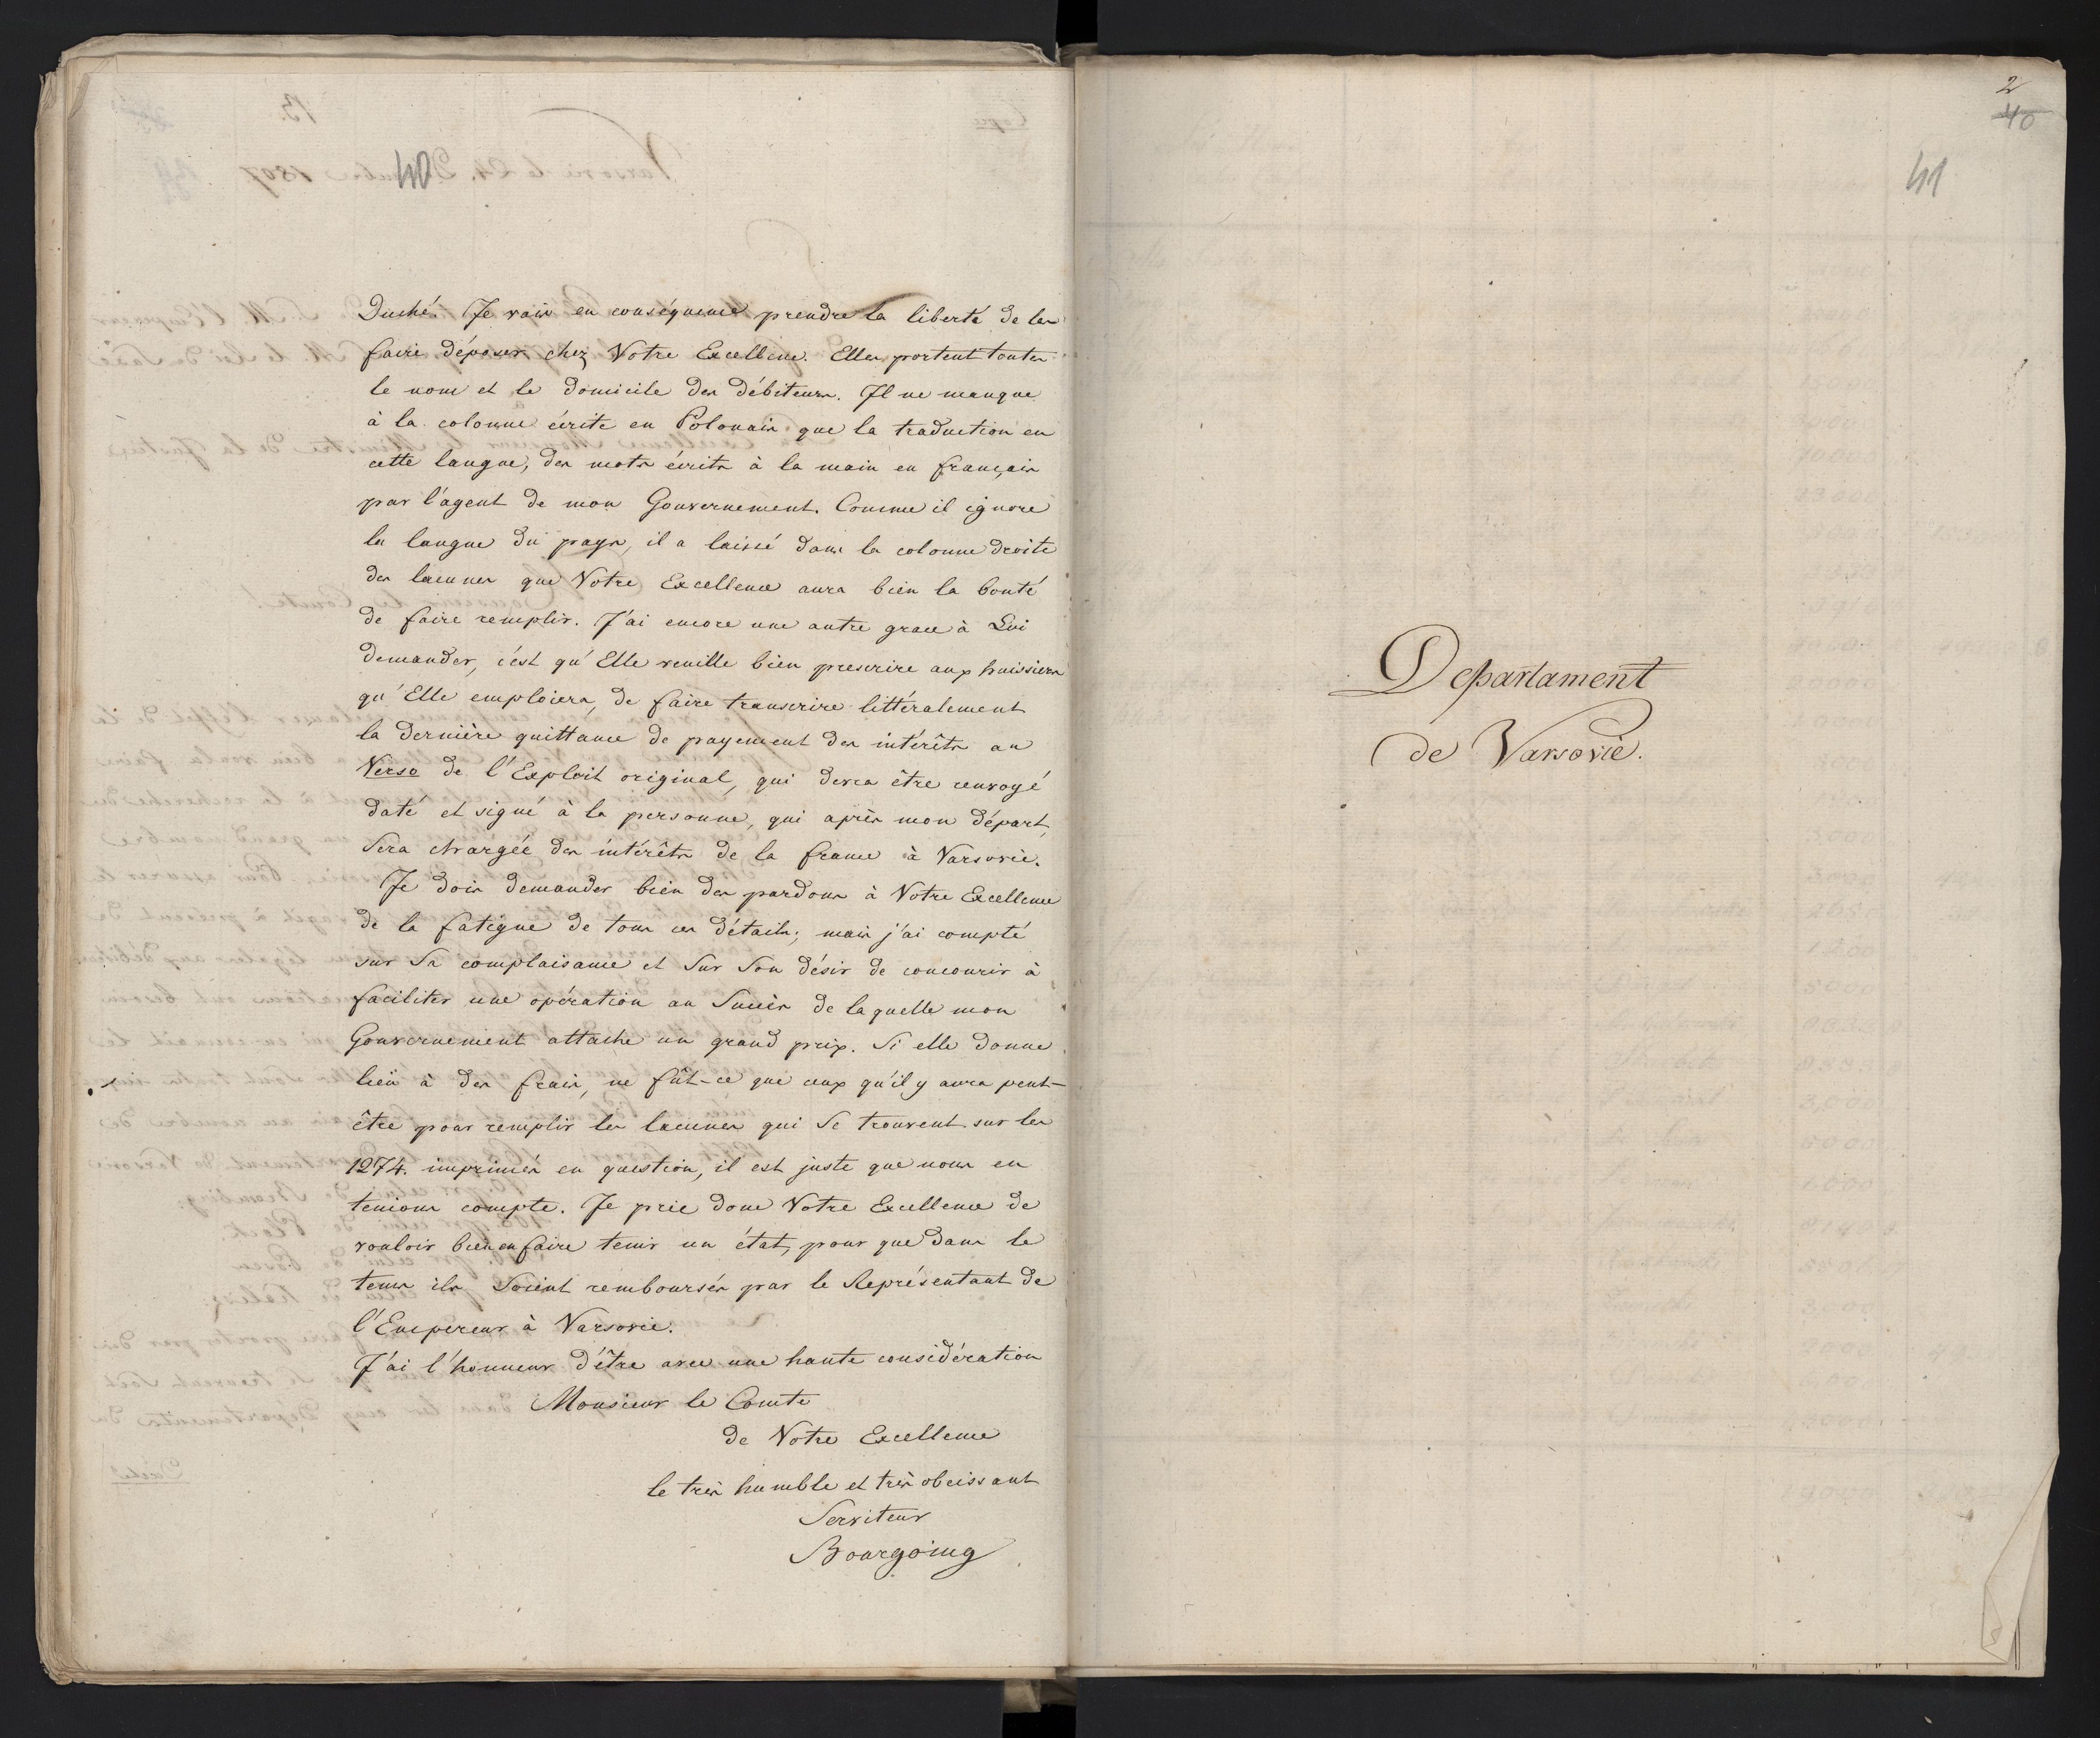 40
Duché. Je vais en conséquence prendre la liberté de les
faire déposer chez Votre Excellence. Elles portent toutes
le nom et le domicile des débiteurs. Il ne manque
à la colonne écrite en Polonais que la traduction en
cette langue, des mots écrits à la main en français
par l'agent de mon Gouvernement. Comme il ignore
la langue du pays, il a laissé dans la colonne droite
des lacunes que Votre Excellence aura bien la bonté
de faire remplir. J'ai encore une autre grace à Lui
demander, c'est qu'Elle veuille bien prescrire aux huissiers
qu'Elle emploiera, de faire transcrire littéralement
la dernière quittance de payement des intérêts au
Verso de l'Exploit original, qui devra être renvoyé
daté et signé à la personne, qui après mon départ,
sera chargée des intérêts de la france à Varsovie.
Je dois demander bien des pardons à Votre Excellence
de la fatigue de tous ces détails; mais j'ai compté
sur Sa complaisance et Sur Son désir de concourir à
faciliter une opération au Succès de laquelle mon
Gouvernement attache un grand prix. Si elle donne
lieu à des frais, ne fût-ce que ceux qu'il y aura peut-
être pour remplir les lacunes qui Se trouvent sur les
1274. imprimés en question, il est juste que nous en
tenions compte. Je prie donc Votre Excellence de
vouloir bien en faire tenir un état, pour que dans le
tems ils Soient remboursés par le Représentant de
l'Empereur à Varsovie.
J'ai l'honneur d'être avec une haute considération
Monsieur le Comte
de Votre Excellence
le très humble et très obeissant
Serviteur
Bourgoing
2
40
41
Departament
de Varsovie.